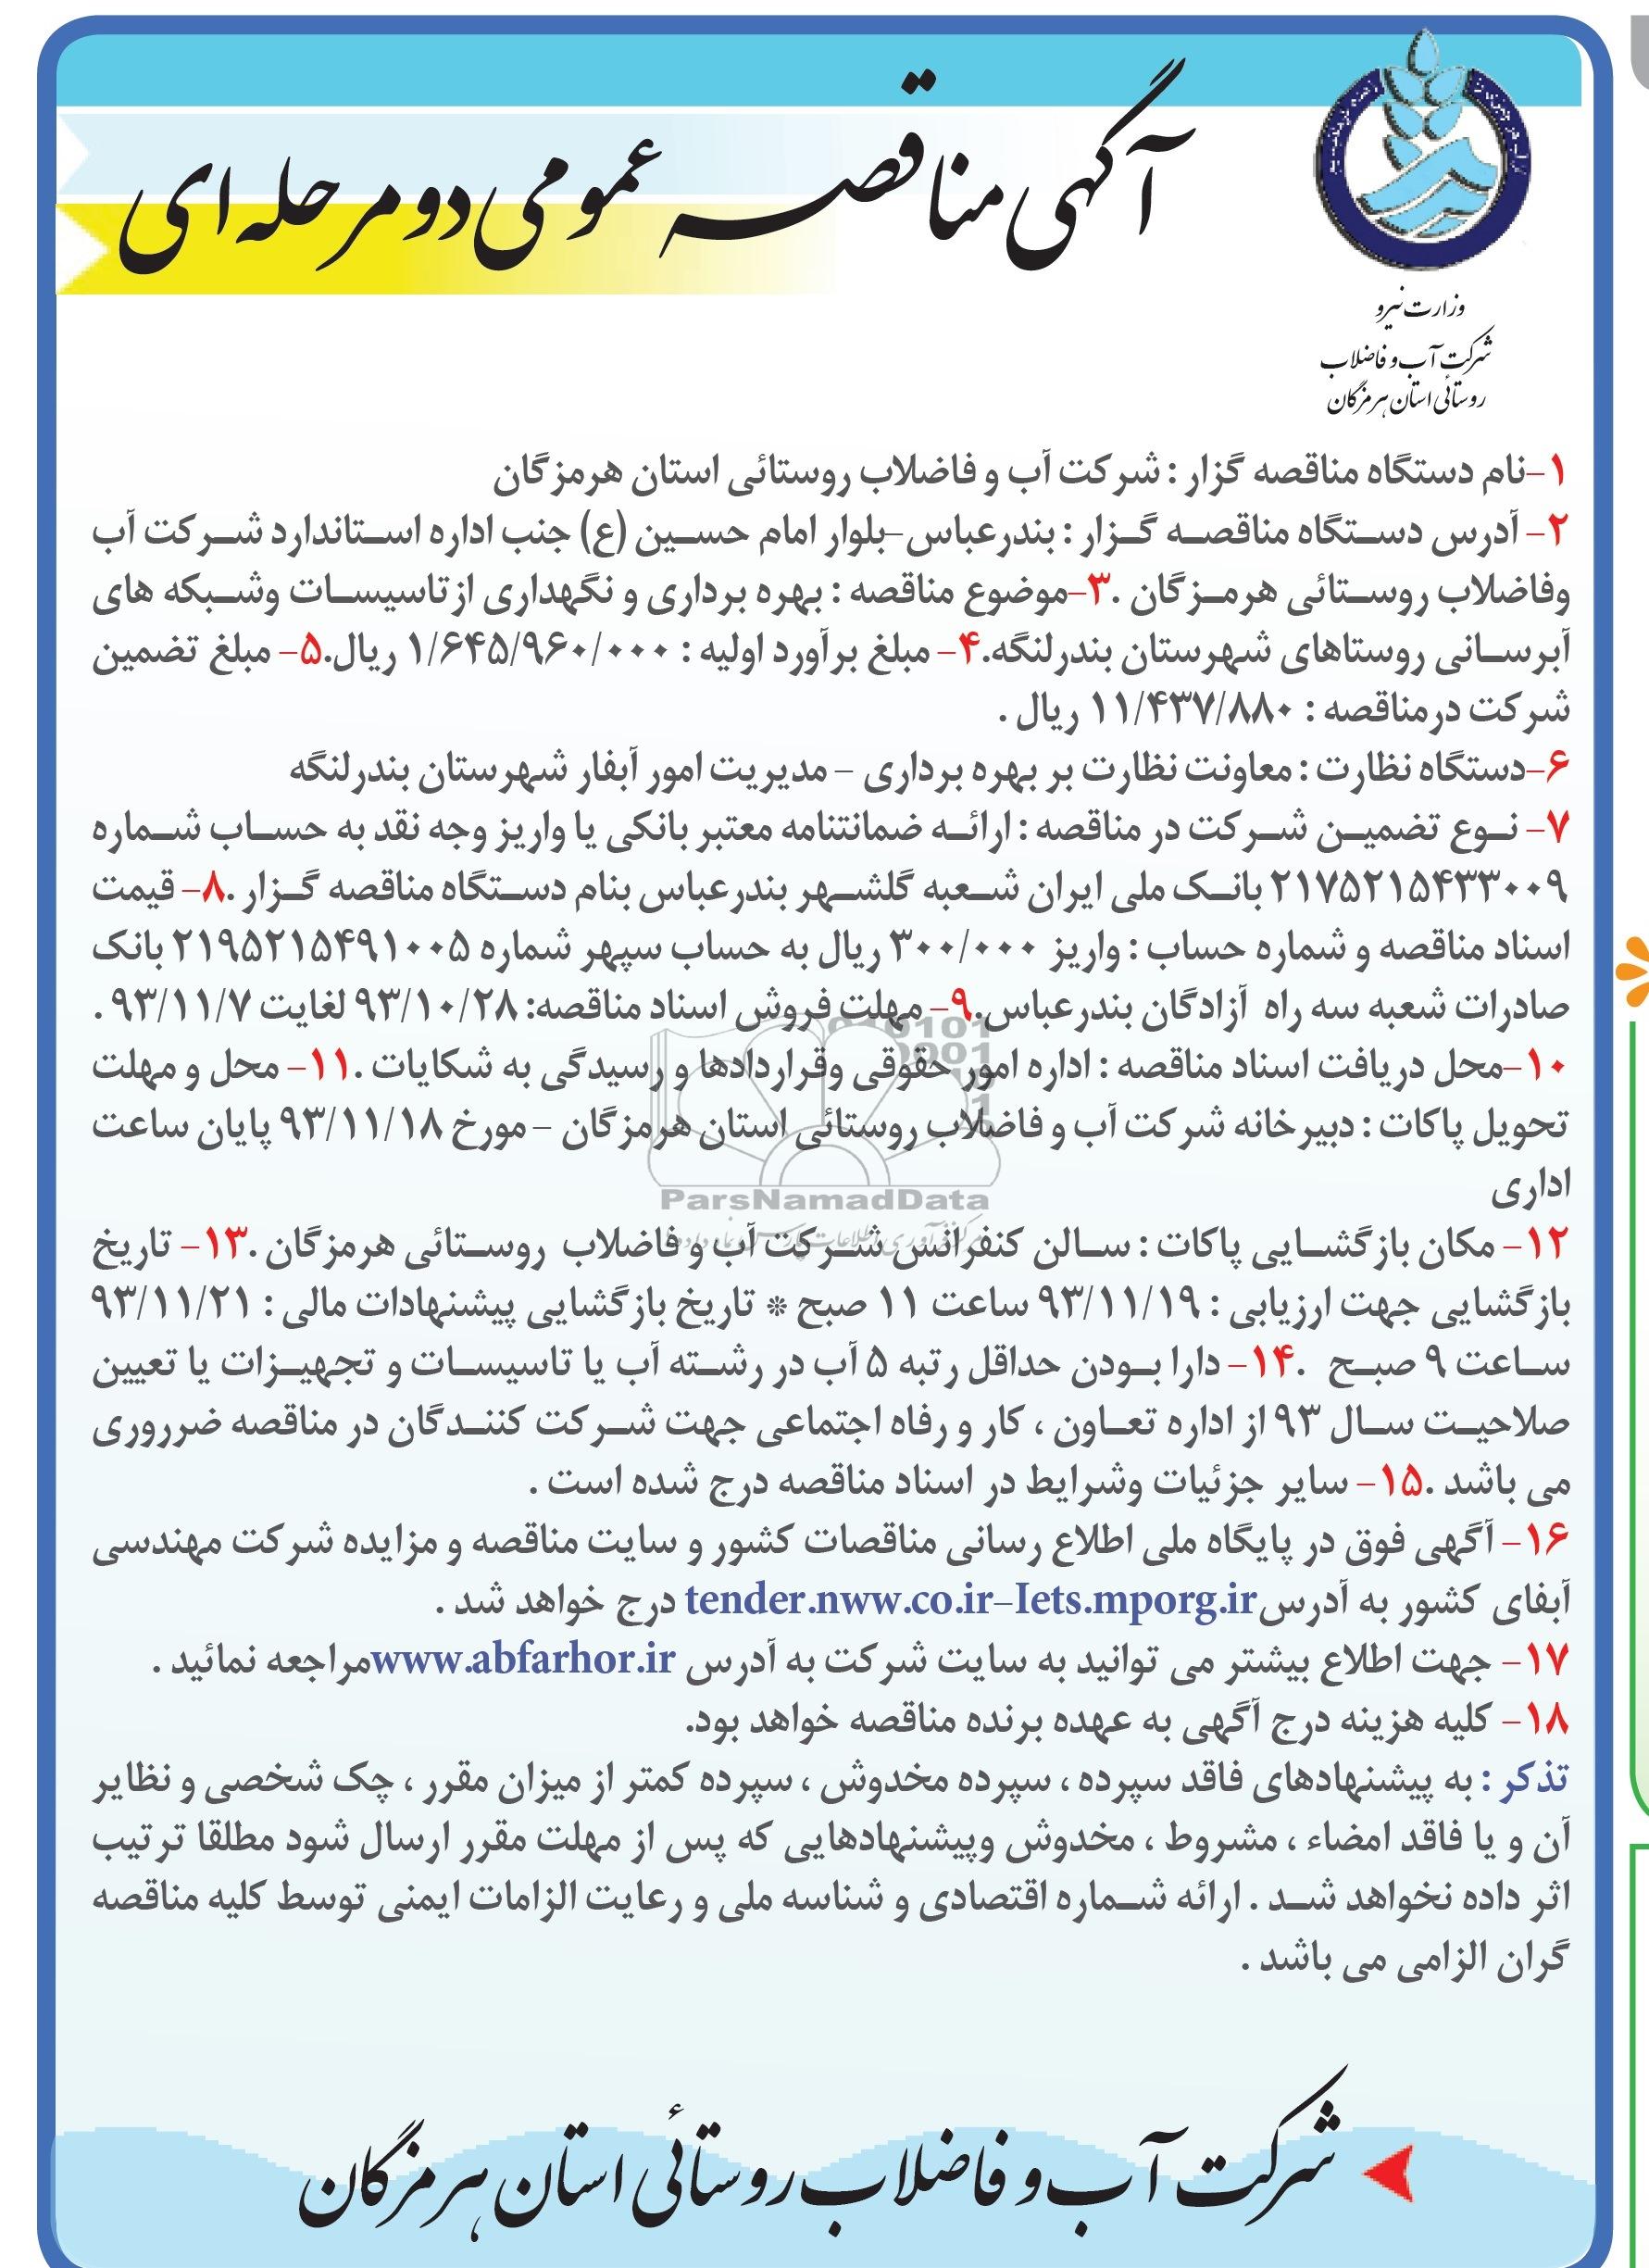 آگهی مناقصه عمومی دو مرحله ای
وزارت نیرو
شرکت آب و فاضلاب
روستائی استان هرمزگان
۱-نام دستگاه مناقصه گزار : شرکت آب و فاضلاب روستائی استان هرمزگان
۲- آدرس دستگاه مناقصه گزار : بندرعباس-بلوار امام حسین (ع) جنب اداره استاندارد شرکت آب
وفاضلاب روستائی هرمزگان .۳-موضوع مناقصه : بهره برداری و نگهداری ازتاسیسات وشبکه های
آبرسانی روستاهای شهرستان بندرلنگه.۴- مبلغ برآورد اولیه : ۱/۶۴۵/۹۶۰/۰۰۰ ریال.۵- مبلغ تضمین
شرکت درمناقصه : ۱۱/۴۳۷/۸۸۰ ریال .
۶-دستگاه نظارت : معاونت نظارت بر بهره برداری - مدیریت امور آبفار شهرستان بندرلنگه
۷- نوع تضمین شرکت در مناقصه : ارائه ضمانتنامه معتبر بانکی یا واریز وجه نقد به حساب شماره
۲۱۷۵۲۱۵۴۳۳۰۰۹ بانک ملی ایران شعبه گلشهر بندرعباس بنام دستگاه مناقصه گزار .۸- قیمت
اسناد مناقصه و شماره حساب : واریز ۳۰۰/۰۰۰ ریال به حساب سپهر شماره ۲۱۹۵۲۱۵۴۹۱۰۰۵ بانک
صادرات شعبه سه راه آزادگان بندرعباس.۹- مهلت فروش اسناد مناقصه: ۹۳/۱۰/۲۸ لغایت ۹۳/۱۱/۷ .
۱۰-محل دریافت اسناد مناقصه : اداره امور حقوقی وقراردادها و رسیدگی به شکایات .۱۱- محل و مهلت
تحویل پاکات : دبیرخانه شرکت آب و فاضلاب روستائی استان هرمزگان - مورخ ۹۳/۱۱/۱۸ پایان ساعت
اداری
ParsNamadData
۱۲- مکان بازگشایی پاکات : سالن کنفرانس شرکت آب و فاضلاب روستائی هرمزگان .۱۳- تاریخ
بازگشایی جهت ارزیابی : ۹۳/۱۱/۱۹ ساعت ۱۱ صبح * تاریخ بازگشایی پیشنهادات مالی : ۹۳/۱۱/۲۱
ساعت ۹ صبح .۱۴- دارا بودن حداقل رتبه ۵ آب در رشته آب یا تاسیسات و تجهیزات یا تعیین
صلاحیت سال ۹۳ از اداره تعاون ، کار و رفاه اجتماعی جهت شرکت کنندگان در مناقصه ضرروری
می باشد .۱۵- سایر جزئیات وشرایط در اسناد مناقصه درج شده است .
۱۶- آگهی فوق در پایگاه ملی اطلاع رسانی مناقصات کشور و سایت مناقصه و مزایده شرکت مهندسی
آبفای کشور به آدرس tender.nww.co.ir-Iets.mporg.ir درج خواهد شد .
۱۷- جهت اطلاع بیشتر می توانید به سایت شرکت به آدرس www.abfarhor.ir مراجعه نمائید .
۱۸- کلیه هزینه درج آگهی به عهده برنده مناقصه خواهد بود.
تذکر : به پیشنهادهای فاقد سپرده ، سپرده مخدوش ، سپرده کمتر از میزان مقرر ، چک شخصی و نظایر
آن و یا فاقد امضاء ، مشروط ، مخدوش وپیشنهادهایی که پس از مهلت مقرر ارسال شود مطلقا ترتیب
اثر داده نخواهد شد . ارائه شماره اقتصادی و شناسه ملی و رعایت الزامات ایمنی توسط کلیه مناقصه
گران الزامی می باشد .
شرکت آب و فاضلاب روستائی استان هرمزگان